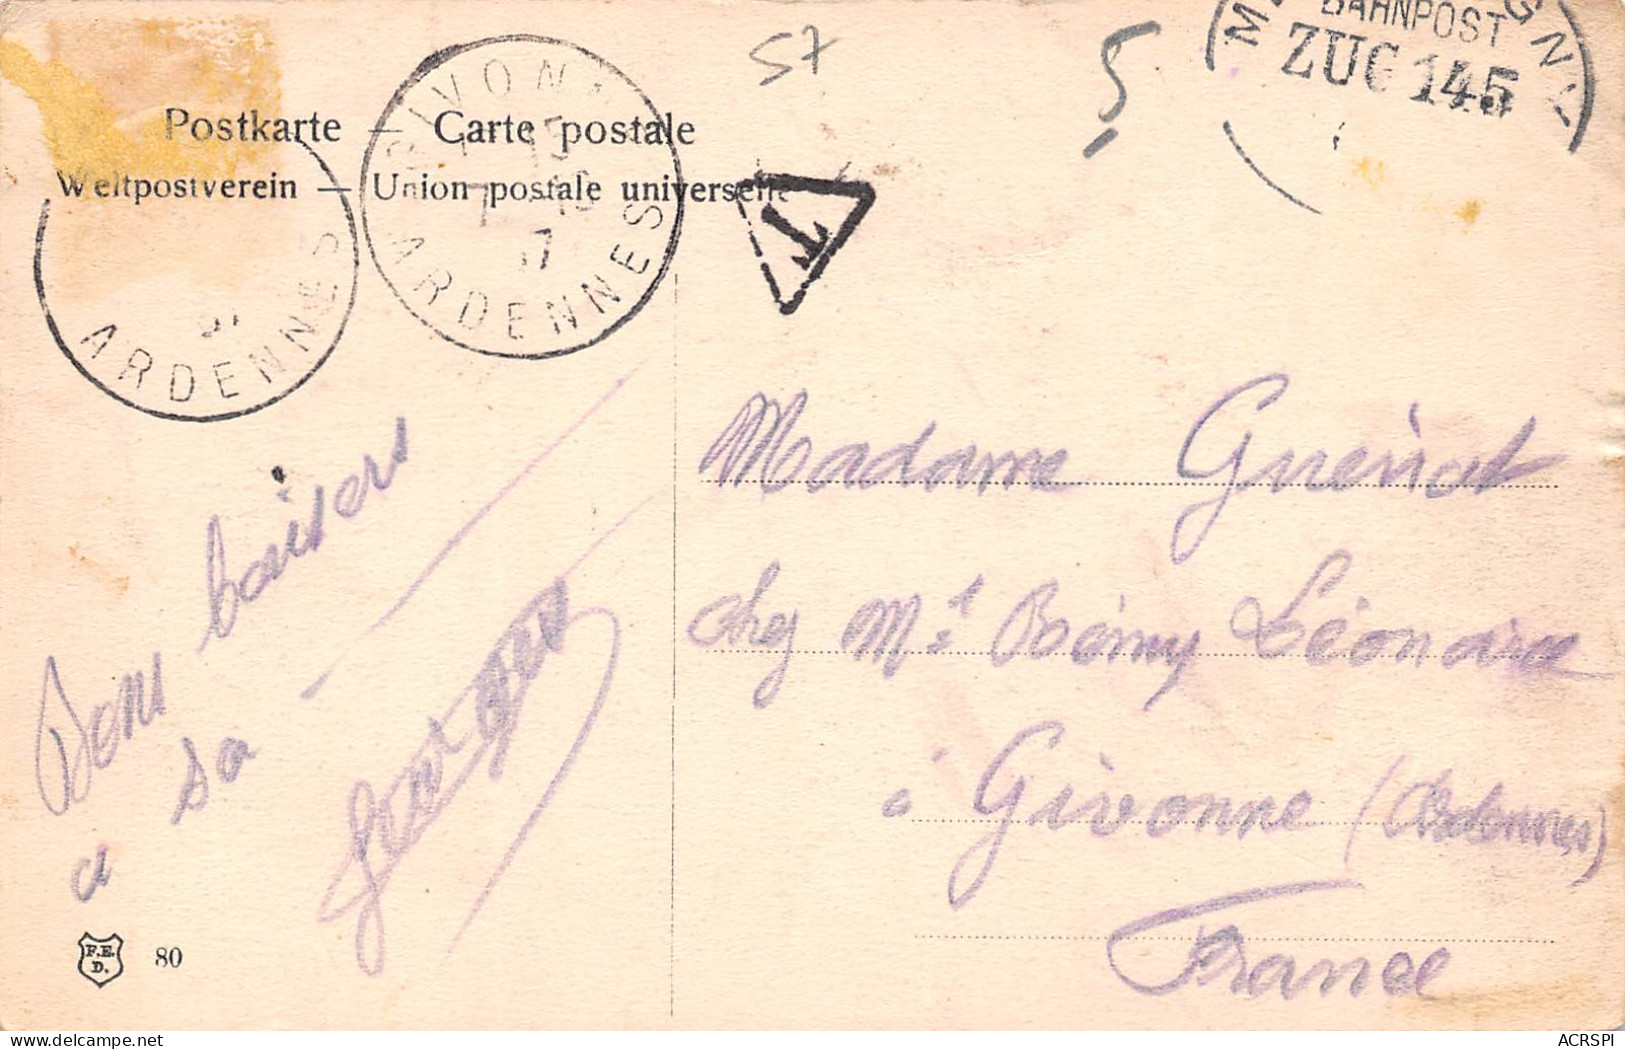 57
5
BAHNPOST
ZUG 145
Postkarte — Carte postale
Weltpostverein — Union postale universelle
GIVONNE
15
7
17
ARDENNES
ARDENNES
T
Bons baisers
a sa
Madame Gueriot
chez Mr Rémy Léonard
à Givonne (Ardennes)
France
F.E.D.
80
ACRSPI